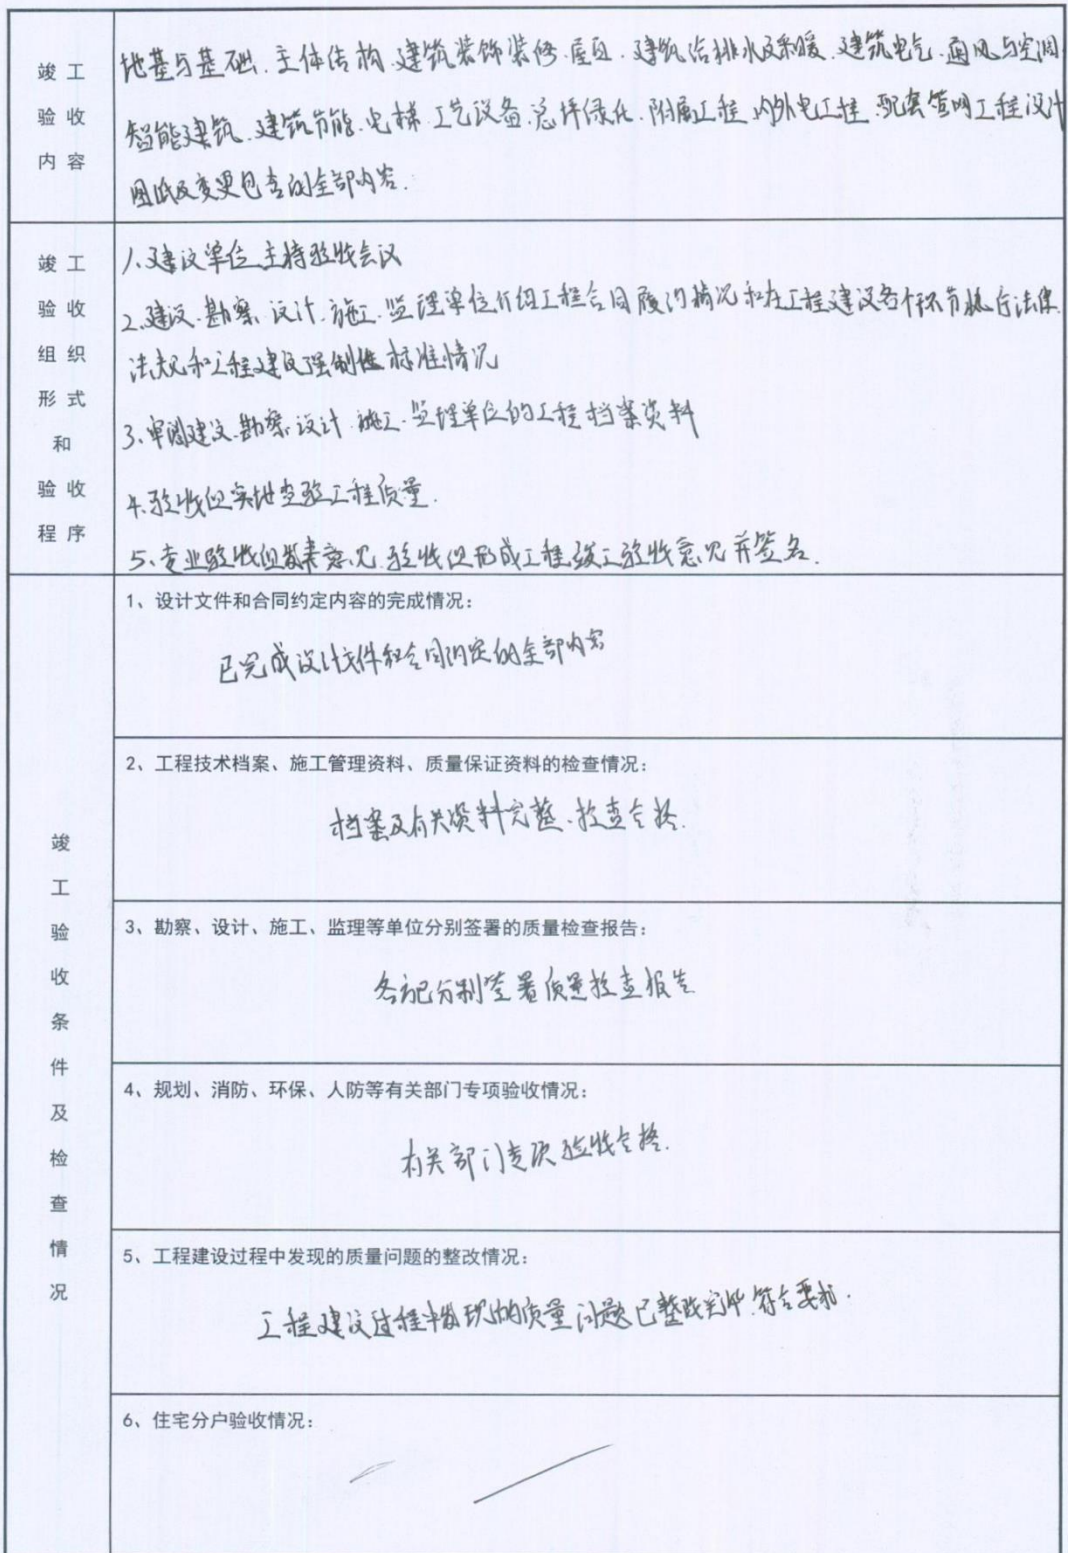 竣工
验收
内容
地基与基础、主体结构、建筑装饰装修、屋面、建筑给排水及采暖、建筑电气、通风与空调、
智能建筑、建筑节能、电梯、工艺设备、总坪绿化、附属工程、内外电工程、配套管网工程设计
图纸及变更包含的全部内容.
竣工
验收
组织
形式
和
验收
程序
1、建设单位主持验收会议
2、建设、勘察、设计、施工、监理单位介绍工程合同履约情况和在工程建设各个环节执行法律、
法规和工程建设强制性标准情况
3、审阅建设、勘察、设计、施工、监理单位的工程档案资料
4、验收组实地查验工程质量.
5、专业验收组发表意见,验收组形成工程竣工验收意见并签名.
竣
工
验
收
条
件
及
检
查
情
况
1、设计文件和合同约定内容的完成情况:
已完成设计文件和合同约定的全部内容
2、工程技术档案、施工管理资料、质量保证资料的检查情况:
档案及有关资料完整、检查合格.
3、勘察、设计、施工、监理等单位分别签署的质量检查报告:
各方已分别签署质量检查报告
4、规划、消防、环保、人防等有关部门专项验收情况:
有关部门专项验收合格.
5、工程建设过程中发现的质量问题的整改情况:
工程建设过程中发现的质量问题已整改完毕,符合要求.
6、住宅分户验收情况: